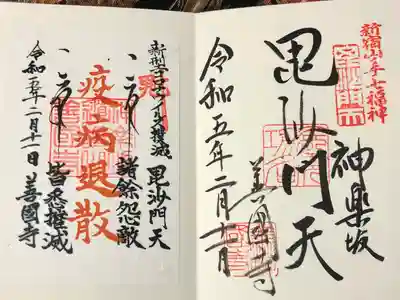 新宿山ノ手七福神
神楽坂
毘沙門天
善國寺
令和五年二月十一日
新型コロナウイルス撲滅 毘沙門天
諸餘怨敵
疫病退散
皆悉摧滅
令和五年二月十一日 善國寺